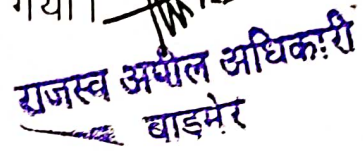 गया।
राजस्व अपील अधिकारी
बाड़मेर